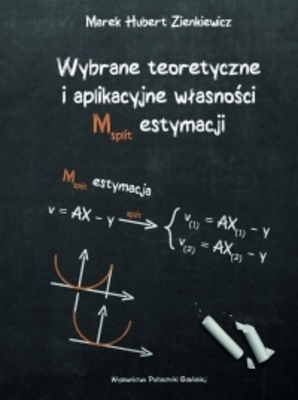 Marek Hubert Zienkiewicz
Wybrane teoretyczne
i aplikacyjne własności
M split estymacji
M split estymacja
v = AX - y split { v(1) = AX(1) - y
v(2) = AX(2) - y
Wydawnictwo Politechniki Gdańskiej